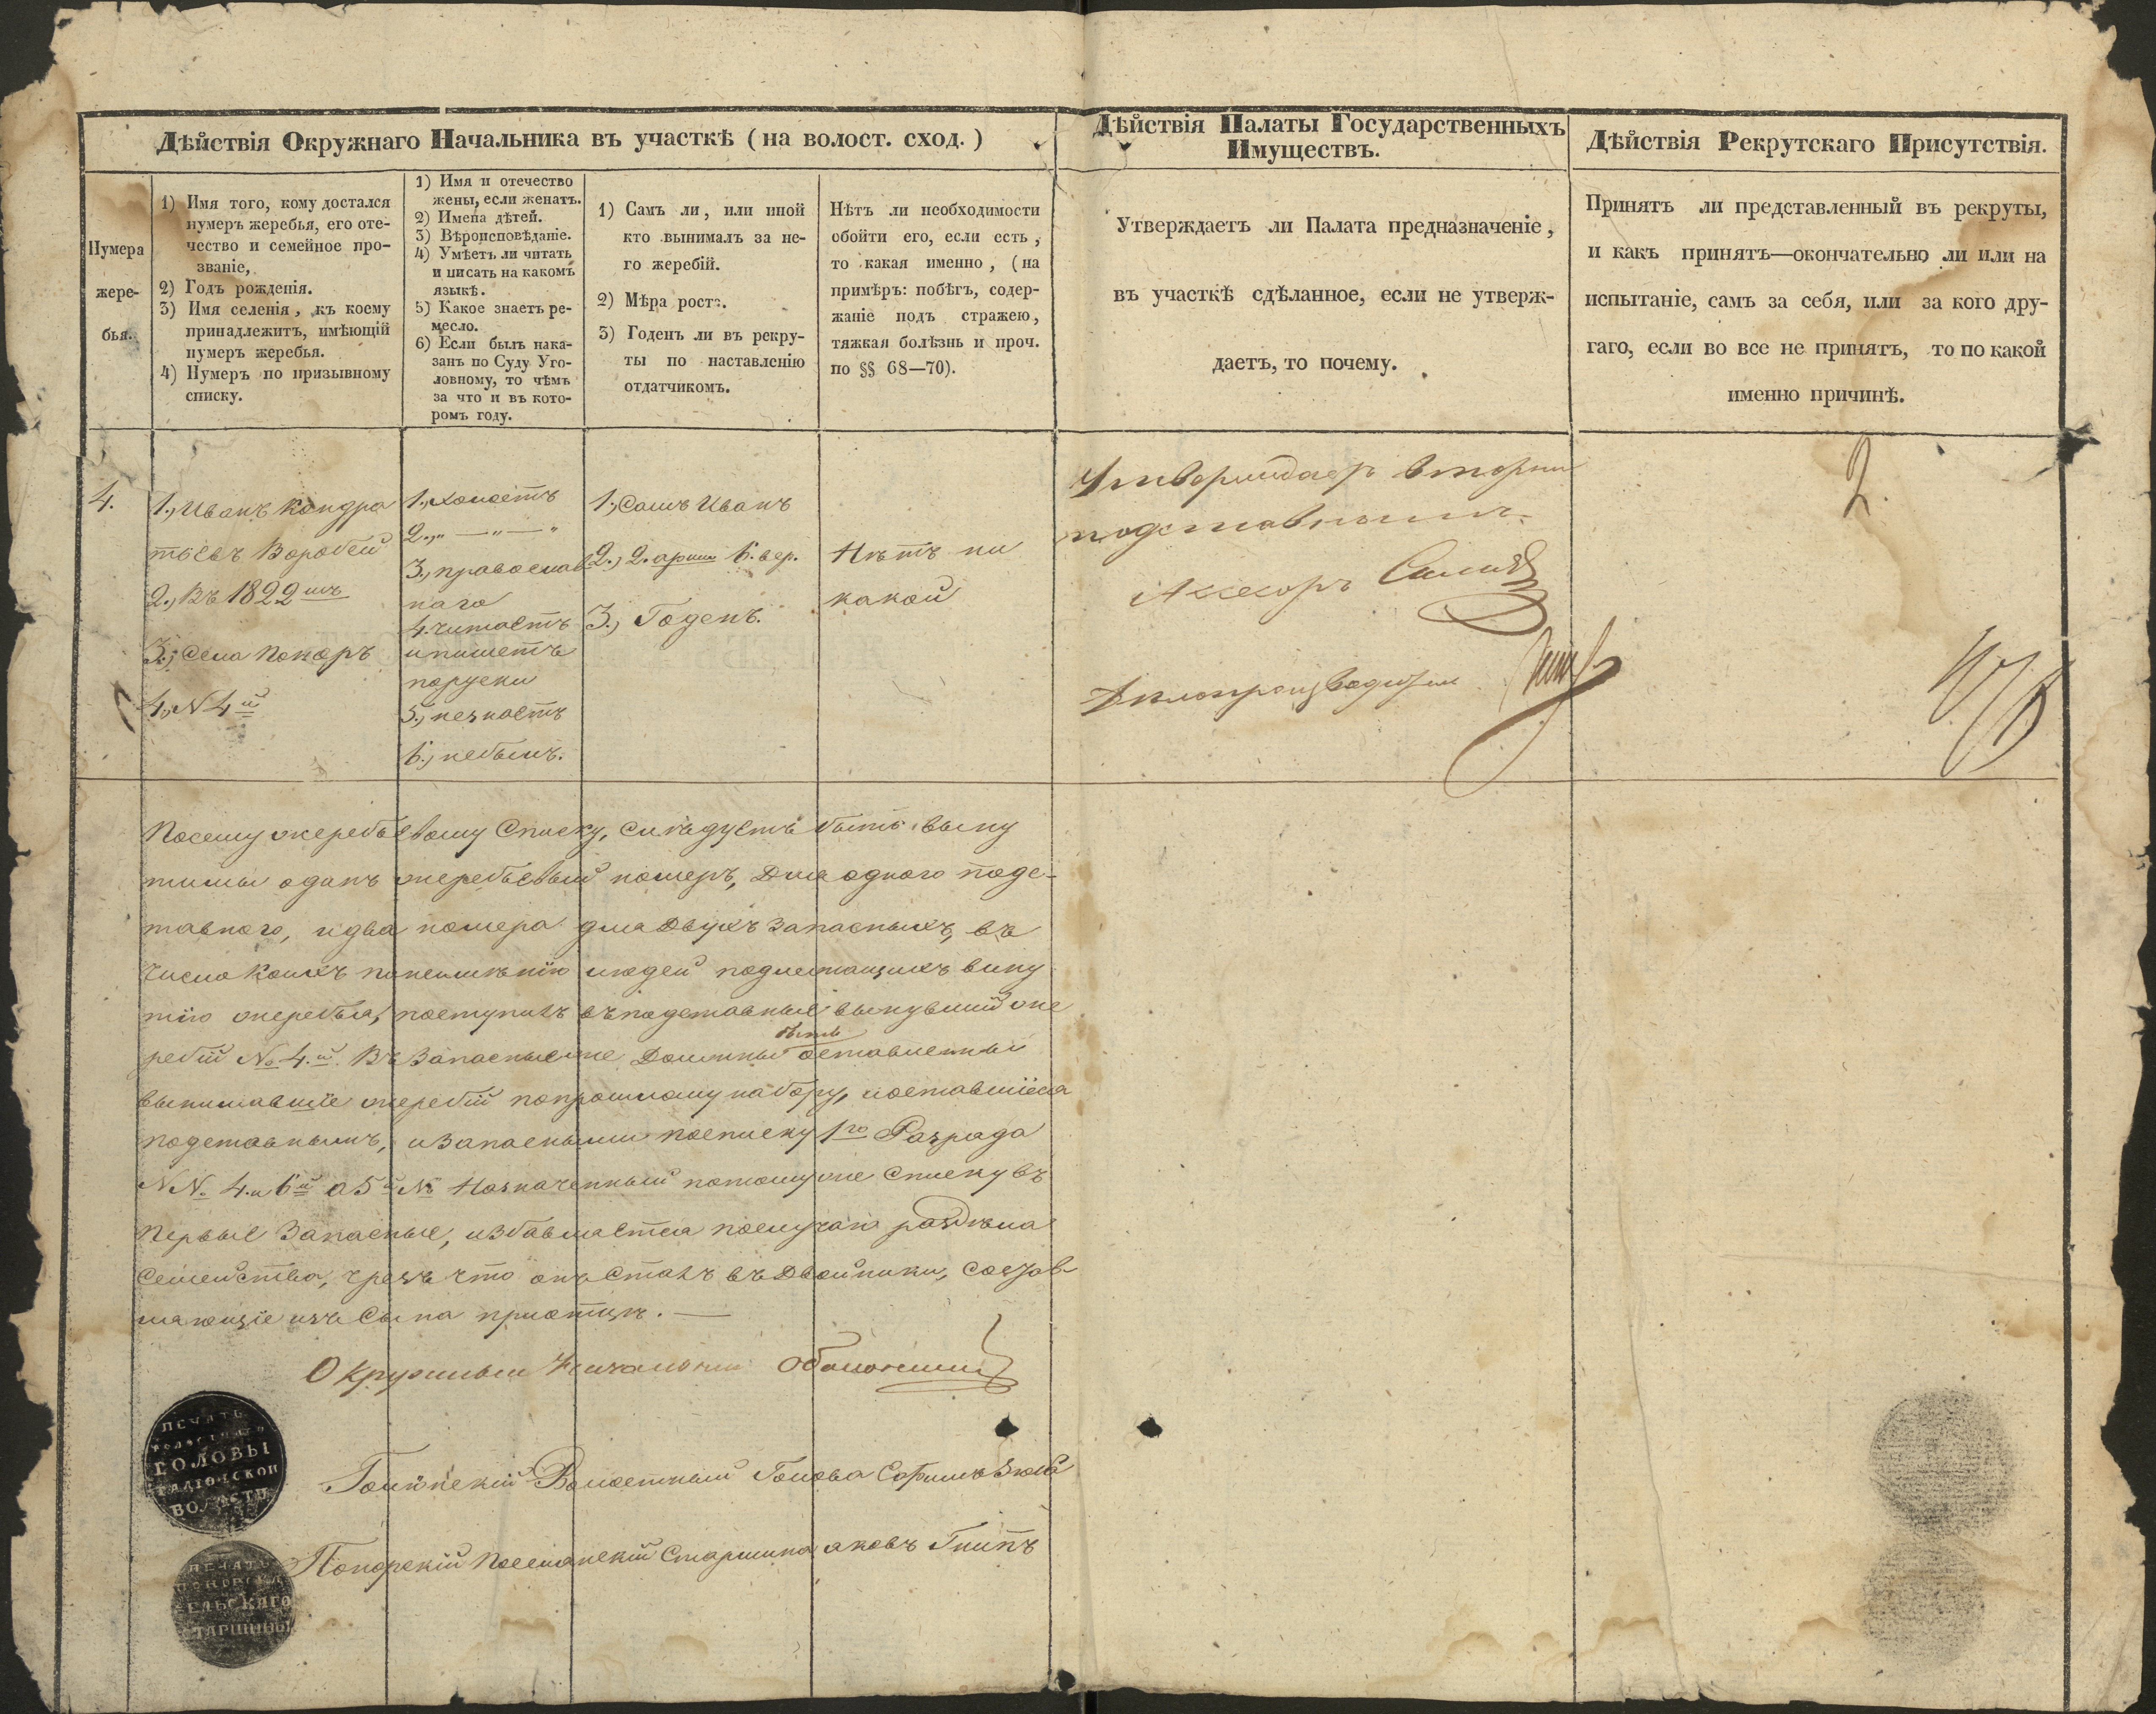 Дѣйствія Окружнаго Начальника въ участкѣ (на волост. сход.)
Дѣйствія Палаты Государственныхъ
Имуществъ.
Дѣйствія Рекрутскаго Присутствія.
Нумера
жере-
бья.
1) Имя того, кому достался
нумеръ жеребья, его оте-
чество и семейное про-
званіе,
2) Годъ рожденія.
3) Имя селенія, къ коему
принадлежитъ, имѣющій
нумеръ жеребья.
4) Нумеръ по призывному
списку.
1) Имя и отечество
жены, если женатъ.
2) Имена дѣтей.
3) Вѣроисповѣданіе.
4) Умѣетъ ли читать
и писать на какомъ
языкѣ.
5) Какое знаетъ ре-
месло.
6) Если былъ нака-
занъ по Суду Уго-
ловному, то чѣмъ
за что и въ кото-
ромъ году.
1) Самъ ли, или иной
кто вынималъ за не-
го жеребій.
2) Мѣра роста.
3) Годенъ ли въ рекру-
ты по наставленію
отдатчикомъ.
Нѣтъ ли необходимости
обойти его, если есть,
то какая именно, (на
примѣръ: побѣгъ, содер-
жаніе подъ стражею,
тяжкая болѣзнь и проч.
по §§ 68—70).
Утверждаетъ ли Палата предназначеніе,
въ участкѣ сдѣланное, если не утверж-
даетъ, то почему.
Принятъ ли представленный въ рекруты,
и какъ принятъ—окончательно ли или на
испытаніе, самъ за себя, или за кого дру-
гаго, если во все не принятъ, то по какой
именно причинѣ.
4.
1., Иванъ Кондра
тьевъ Воробей
2., Въ 1822 мъ
3., Села Поноръ
4., N 4й
1., холостъ
2., „ — „ — „
3., православ
наго
4. читаетъ
и пишетъ
поруски
5., незнаетъ
6., небылъ.
1., Самъ Иванъ
2., 2. арши 6. вер.
3., Годенъ.
Нѣтъ ни
какой
Утверждаетъ вторым
подставнымъ.
Ассесоръ
Дѣлопроизводитель
2.
Посему жеребьевому Списку, Слѣдуетъ быть выну
тымы одинъ жеребьевый номеръ, Для одного подс-
тавного, и два номера для Двухъ Запасныхъ, въ
число коихъ понеимѣнію людей подлежащихъ выну
тію жеребья, поступилъ въ подставные вынувший же
ребій № 4.й. Въ Запасные же Должны быть оставленны
вынимавшіе жеребій попрошлому набору, и оставшіеся
подставнымъ, и Запасными посписку 1го Разряда
NN. 4. и 6й а 5й № Назначенный потомуже Списку въ
первые Запасные, избавляется послучаю раздѣла
Семейства, чрезъ что онъ Сталъ въ Двойники, Состав
ляющіе изъ Сына приотцѣ. —
Окружный Начальник
Волостный Голова
Понорскій Сельскій Старшина аковъ Гнипъ
ПЕЧАТЬ
ГОЛОВЫ
ВОЛОСТИ
ПЕЧАТЬ
СЕЛЬСКАГО
СТАРШИНЫ